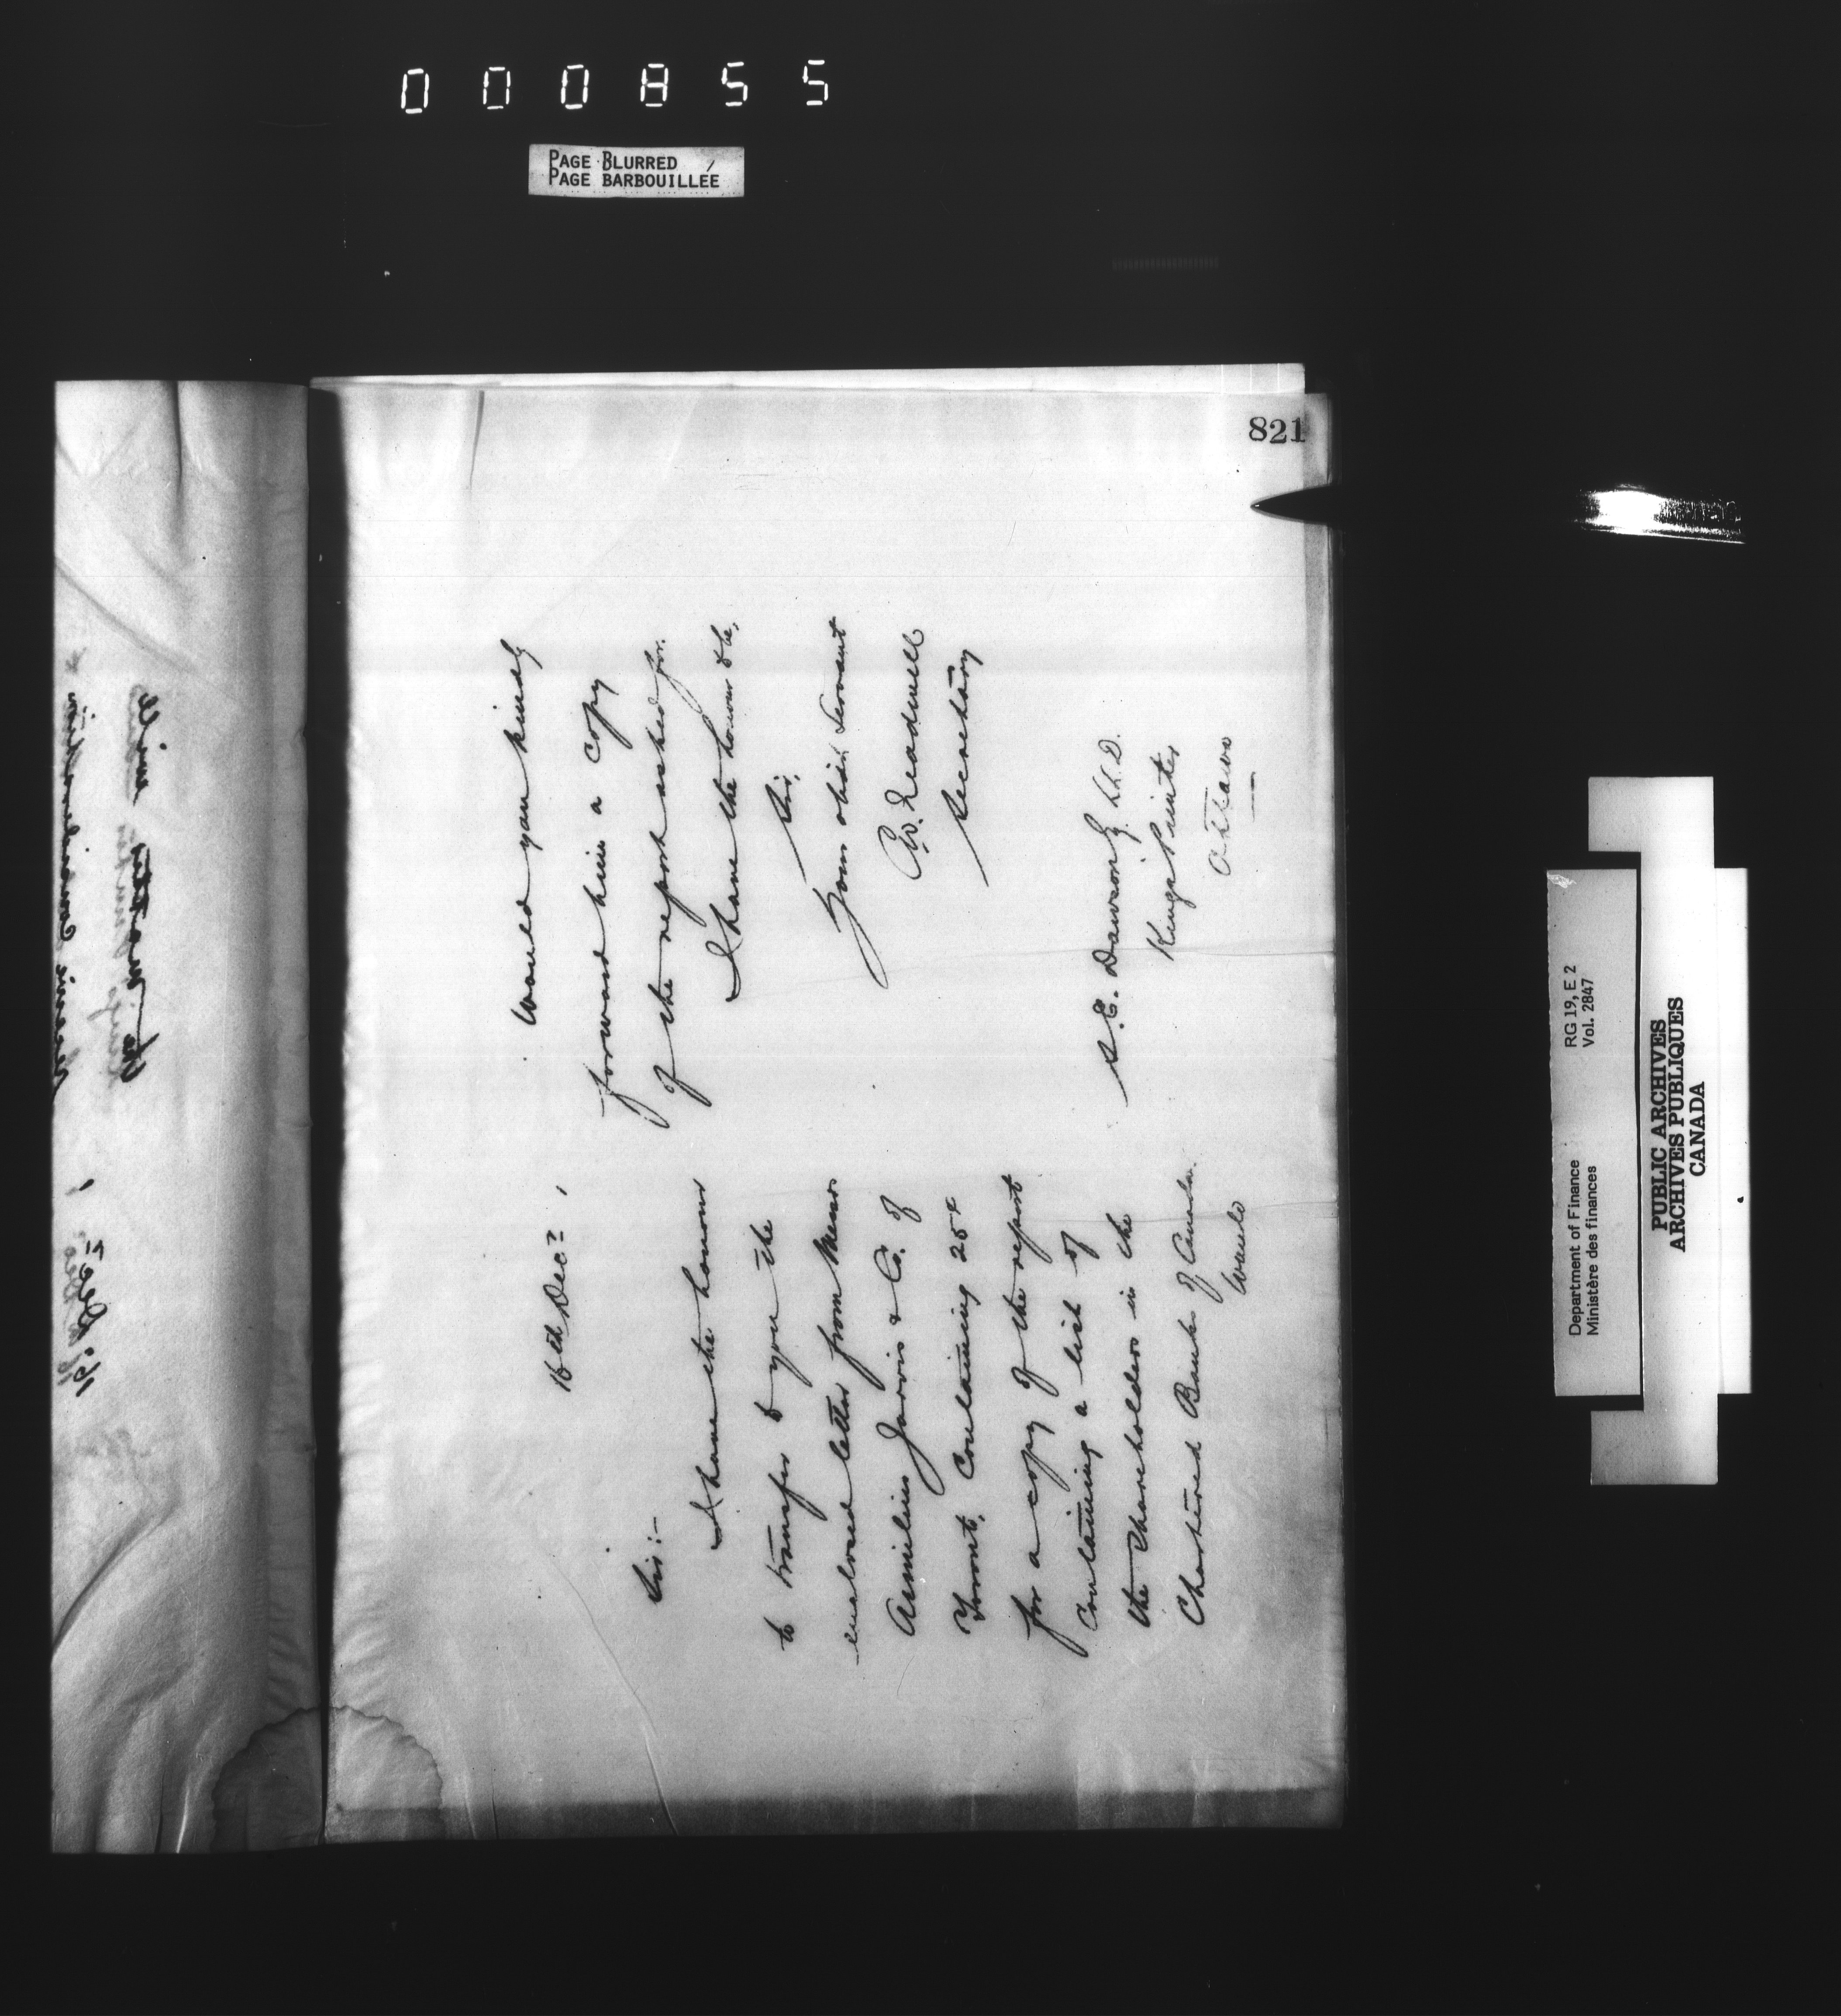 000855
PAGE BLURRED
PAGE BARBOUILLÉE
821
16th Dec
Sir:-
I have the honour
to transfer to you the
enclosed letter from Messrs
Aemilius Jarvis & Co. of
Toront, Containing 25¢
for a copy of the report
Containing a list of
the shareholders in the
Chartered Banks of Canada.
Would
Would you kindly
forward him a copy
of the report asked for.
I have the honour to be,
Sir,
Your obdt Servant
C.W. Treadwell
Secretary
S.E. Dawson Esq LL.D.
Kings Printer
Ottawa
Department of Finance
Ministère des finances
RG 19, E 2
Vol. 2847
PUBLIC ARCHIVES
ARCHIVES PUBLIQUES
CANADA